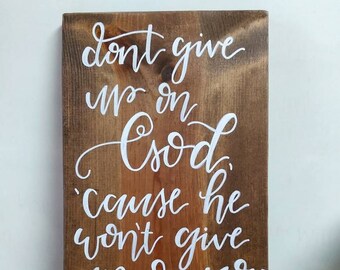 don't give
up on
God,
'cause he
won't give